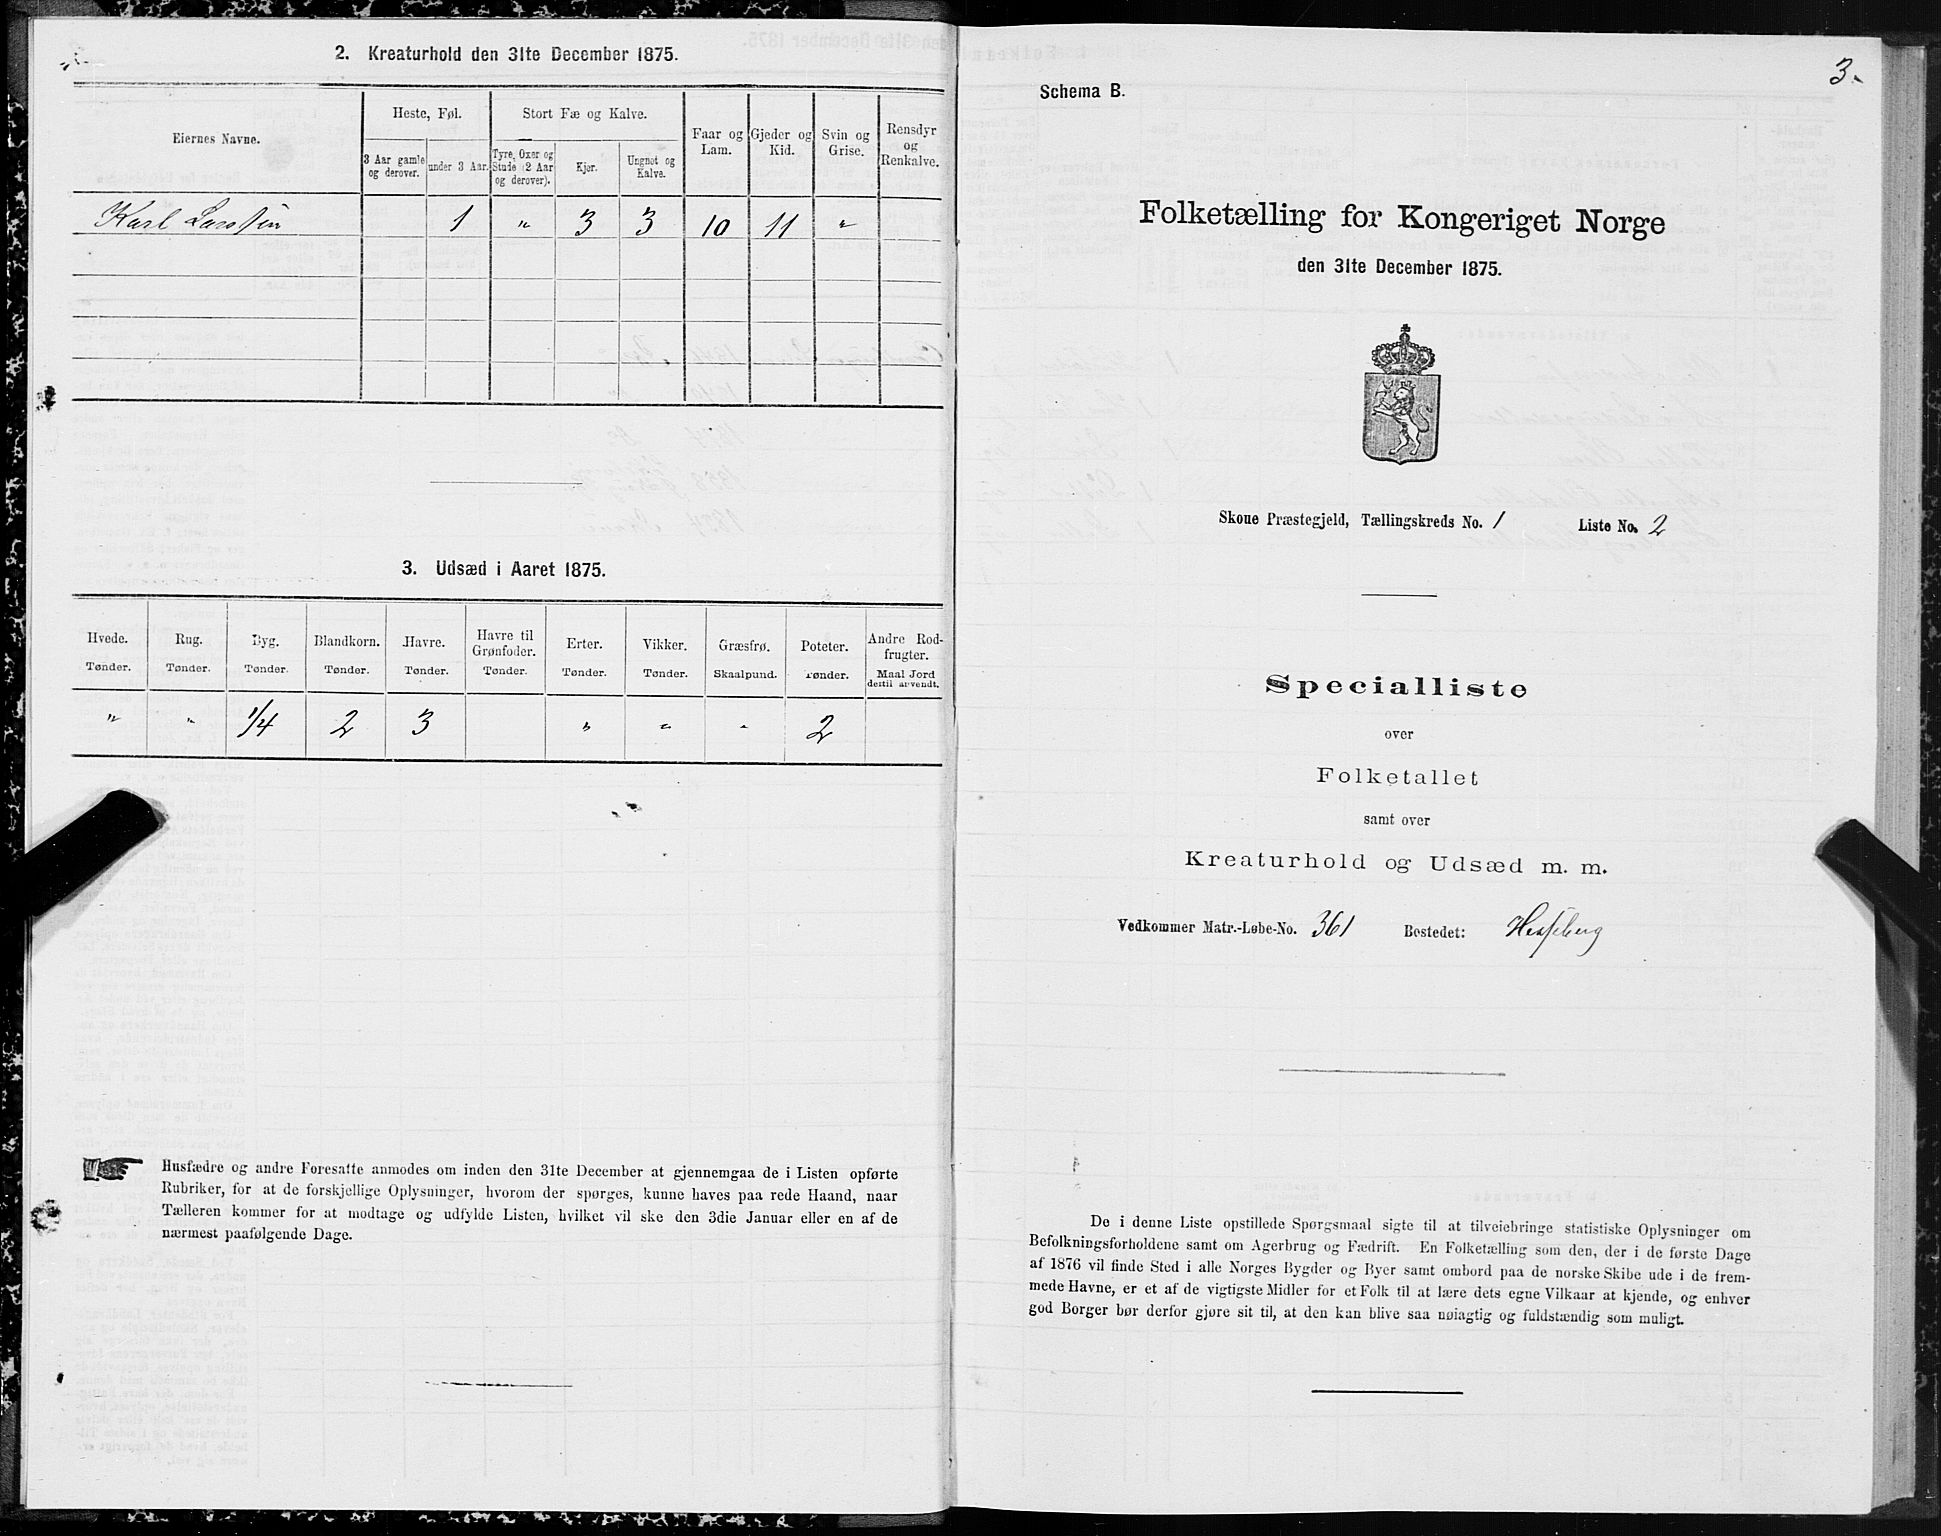 2. Kreaturhold den 31te December 1875.
Eiernes Navne.
Heste, Føl.
Stort Fæ og Kalve.
Faar og Lam.
Gjeder og Kid.
Svin og Grise.
Rensdyr og Renkalve.
3 Aar gamle og derover.
under 3 Aar.
Tyre, Oxer og Stude (2 Aar og derover).
Kjør.
Ungnøt og Kalve.
Karl Larssen 1 " 3 3 10 11 "
3. Udsæd i Aaret 1875.
Hvede. Rug. Byg. Blandkorn. Havre. Havre til Grønfoder. Erter. Vikker. Græsfrø. Poteter. Andre Rodfrugter.
Tønder. Tønder. Tønder. Tønder. Tønder. Tønder. Tønder. Tønder. Skaalpund. Tønder. Maal Jord dertil anvendt.
" " 1/4 2 3 " " " 2
Husfædre og andre Foresatte anmodes om inden den 31te December at gjennemgaa de i Listen opførte
Rubriker, for at de forskjellige Oplysninger, hvorom der spørges, kunne haves paa rede Haand, naar
Tælleren kommer for at modtage og udfylde Listen, hvilket vil ske den 3die Januar eller en af de
nærmest paafølgende Dage.
3.
Schema B.
Folketælling for Kongeriget Norge
den 31te December 1875.
Skoue Præstegjeld, Tællingskreds No. 1 Liste No. 2
Specialliste
over
Folketallet
samt over
Kreaturhold og Udsæd m. m.
Vedkommer Matr.-Løbe-No. 361 Bostedet: Hessberg
De i denne Liste opstillede Spørgsmaal sigte til at tilveiebringe statistiske Oplysninger om
Befolkningsforholdene samt om Agerbrug og Fædrift. En Folketælling som den, der i de første Dage
af 1876 vil finde Sted i alle Norges Bygder og Byer samt ombord paa de norske Skibe ude i de frem-
mede Havne, er et af de vigtigste Midler for et Folk til at lære dets egne Vilkaar at kjende, og enhver
god Borger bør derfor gjøre sit til, at den kan blive saa nøiagtig og fuldstændig som muligt.